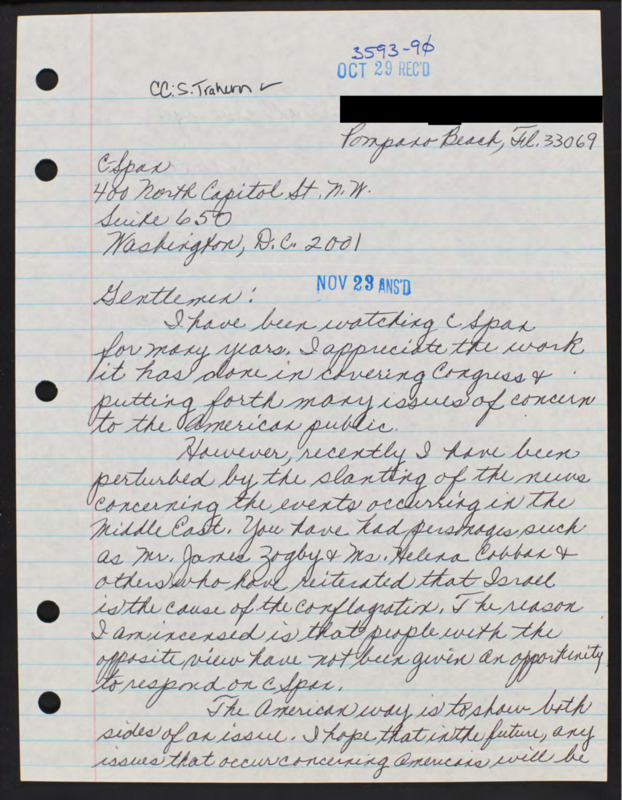 3593-90
OCT 29 REC'D
CC: S. Trahern ✓
Pompano Beach, Fl. 33069
C Span
400 North Capitol St. N.W.
Suite 650
Washington, D.C. 2001
NOV 23 ANS'D
Gentlemen:
I have been watching C Span
for many years. I appreciate the work
it has done in covering Congress &
putting forth many issues of concern
to the American public.
However, recently I have been
perturbed by the slanting of the news
concerning the events occurring in the
Middle East. You have had personages, such
as Mr. James Zogby & Ms. Helena Cobban &
others who have reiterated that Israel
is the cause of the conflagration. The reason
I am incensed is that people with the
opposite view have not been given an opportunity
to respond on C Span.
The American way is to show both
sides of an issue. I hope that in the future, any
issues that occur concerning Americans will be